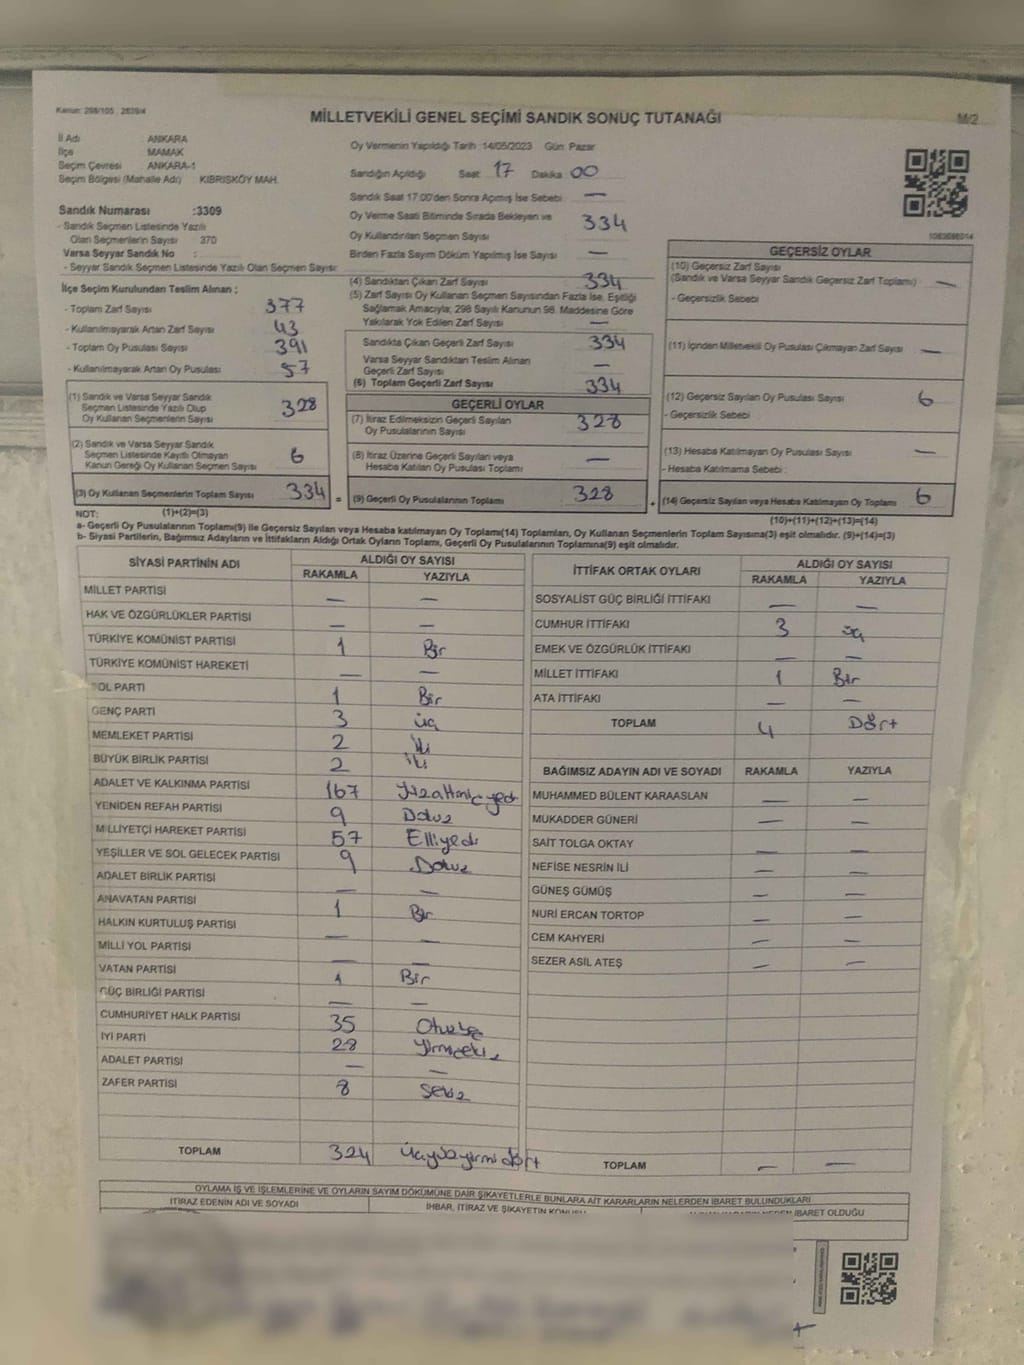 Kanun: 298/105 ; 2839/4
MİLLETVEKİLİ GENEL SEÇİMİ SANDIK SONUÇ TUTANAĞI
M/2
İl Adı : ANKARA
İlçe : MAMAK
Seçim Çevresi : ANKARA-1
Seçim Bölgesi (Mahalle Adı) : KIBRISKÖY MAH.
Oy Vermenin Yapıldığı Tarih :14/05/2023 Gün: Pazar
Sandığın Açıldığı Saat 17 Dakika 00
Sandık Saat 17:00'den Sonra Açımış İse Sebebi: —
Oy Verme Saati Bitiminde Sırada Bekleyen ve
Oy Kullandırılan Seçmen Sayısı 334
Birden Fazla Sayım Döküm Yapılmış İse Sayısı —
Sandık Numarası :3309
- Sandık Seçmen Listesinde Yazılı
Olan Seçmenlerin Sayısı 370
Varsa Seyyar Sandık No :
- Seyyar Sandık Seçmen Listesinde Yazılı Olan Seçmen Sayısı:
İlçe Seçim Kurulundan Teslim Alınan ;
- Toplam Zarf Sayısı 377
- Kullanılmayarak Artan Zarf Sayısı 43
- Toplam Oy Pusulası Sayısı 391
- Kullanılmayarak Artan Oy Pusulası 57
(1) Sandık ve Varsa Seyyar Sandık
Seçmen Listesinde Yazılı Olup
Oy Kullanan Seçmenlerin Sayısı 328
(2) Sandık ve Varsa Seyyar Sandık
Seçmen Listesinde Kayıtlı Olmayan
Kanun Gereği Oy Kullanan Seçmen Sayısı 6
(3) Oy Kullanan Seçmenlerin Toplam Sayısı 334 =
NOT: (1)+(2)=(3)
(4) Sandıktan Çıkan Zarf Sayısı 334
(5) Zarf Sayısı Oy Kullanan Seçmen Sayısından Fazla İse, Eşitliği
Sağlamak Amacıyla; 298 Sayılı Kanunun 98. Maddesine Göre
Yakılarak Yok Edilen Zarf Sayısı —
Sandıkta Çıkan Geçerli Zarf Sayısı 334
Varsa Seyyar Sandıktan Teslim Alınan
Geçerli Zarf Sayısı —
(6) Toplam Geçerli Zarf Sayısı 334
GEÇERLİ OYLAR
(7) İtiraz Edilmeksizin Geçerli Sayılan
Oy Pusulalarının Sayısı 328
(8) İtiraz Üzerine Geçerli Sayılan veya
Hesaba Katılan Oy Pusulası Toplamı —
(9) Geçerli Oy Pusulalarının Toplamı 328 +
1083686014
GEÇERSİZ OYLAR
(10) Geçersiz Zarf Sayısı
(Sandık ve Varsa Seyyar Sandık Geçersiz Zarf Toplamı) —
- Geçersizlik Sebebi :
(11) İçinden Milletvekili Oy Pusulası Çıkmayan Zarf Sayısı —
(12) Geçersiz Sayılan Oy Pusulası Sayısı 6
- Geçersizlik Sebebi :
(13) Hesaba Katılmayan Oy Pusulası Sayısı —
- Hesaba Katılmama Sebebi :
(14) Geçersiz Sayılan veya Hesaba Katılmayan Oy Toplamı 6
(10)+(11)+(12)+(13)=(14)
a- Geçerli Oy Pusulalarının Toplamı(9) ile Geçersiz Sayılan veya Hesaba katılmayan Oy Toplamı(14) Toplamları, Oy Kullanan Seçmenlerin Toplam Sayısına(3) eşit olmalıdır. (9)+(14)=(3)
b- Siyasi Partilerin, Bağımsız Adayların ve İttifakların Aldığı Ortak Oyların Toplamı, Geçerli Oy Pusulalarının Toplamına(9) eşit olmalıdır.
SİYASİ PARTİNİN ADI ALDIĞI OY SAYISI
RAKAMLA YAZIYLA
MİLLET PARTİSİ — —
HAK VE ÖZGÜRLÜKLER PARTİSİ — —
TÜRKİYE KOMÜNİST PARTİSİ 1 Bir
TÜRKİYE KOMÜNİST HAREKETİ — —
SOL PARTİ 1 Bir
GENÇ PARTİ 3 üç
MEMLEKET PARTİSİ 2 iki
BÜYÜK BİRLİK PARTİSİ 2 iki
ADALET VE KALKINMA PARTİSİ 167 Yüzaltmışyedi
YENİDEN REFAH PARTİSİ 9 Dokuz
MİLLİYETÇİ HAREKET PARTİSİ 57 Elliyedi
YEŞİLLER VE SOL GELECEK PARTİSİ 9 Dokuz
ADALET BİRLİK PARTİSİ — —
ANAVATAN PARTİSİ 1 Bir
HALKIN KURTULUŞ PARTİSİ — —
MİLLİ YOL PARTİSİ — —
VATAN PARTİSİ 1 Bir
GÜÇ BİRLİĞİ PARTİSİ — —
CUMHURİYET HALK PARTİSİ 35 Otuzbeş
İYİ PARTİ 28 Yirmisekiz
ADALET PARTİSİ — —
ZAFER PARTİSİ 8 Sekiz
TOPLAM 324 üçyüzyirmidört
İTTİFAK ORTAK OYLARI ALDIĞI OY SAYISI
RAKAMLA YAZIYLA
SOSYALİST GÜÇ BİRLİĞİ İTTİFAKI — —
CUMHUR İTTİFAKI 3 üç
EMEK VE ÖZGÜRLÜK İTTİFAKI — —
MİLLET İTTİFAKI 1 Bir
ATA İTTİFAKI — —
TOPLAM 4 Dört
BAĞIMSIZ ADAYIN ADI VE SOYADI RAKAMLA YAZIYLA
MUHAMMED BÜLENT KARAASLAN — —
MUKADDER GÜNERİ — —
SAİT TOLGA OKTAY — —
NEFİSE NESRİN İLİ — —
GÜNEŞ GÜMÜŞ — —
NURİ ERCAN TORTOP — —
CEM KAHYERİ — —
SEZER ASİL ATEŞ — —
TOPLAM — —
OYLAMA İŞ VE İŞLEMLERİNE VE OYLARIN SAYIM DÖKÜMÜNE DAİR ŞİKAYETLERLE BUNLARA AİT KARARLARIN NELERDEN İBARET BULUNDUKLARI
İTİRAZ EDENİN ADI VE SOYADI İHBAR, İTİRAZ VE ŞİKAYETİN KONUSU NEDEN İBARET OLDUĞU